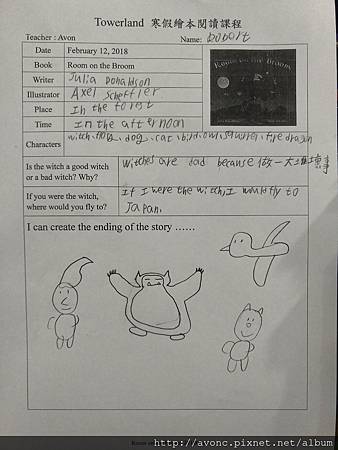 Towerland 寒假繪本閱讀課程
Teacher : Avon
Name: Bobort
Date February 12, 2018
Book Room on the Broom
ROOM ON THE BROOM
Writer Julia Donaldson
Illustrator Axel Scheffler
Place In the forest
Time In the afternoon
Characters witch, frog, dog, cat, bird, owl, fire dragon
Is the witch a good witch or a bad witch? Why?
Witches are bad because 做一大堆壞事
If you were the witch, where would you fly to?
If I were the witch, I would fly to
Japan.
I can create the ending of the story ……
Room on
http://avonc.pixnet.net/album